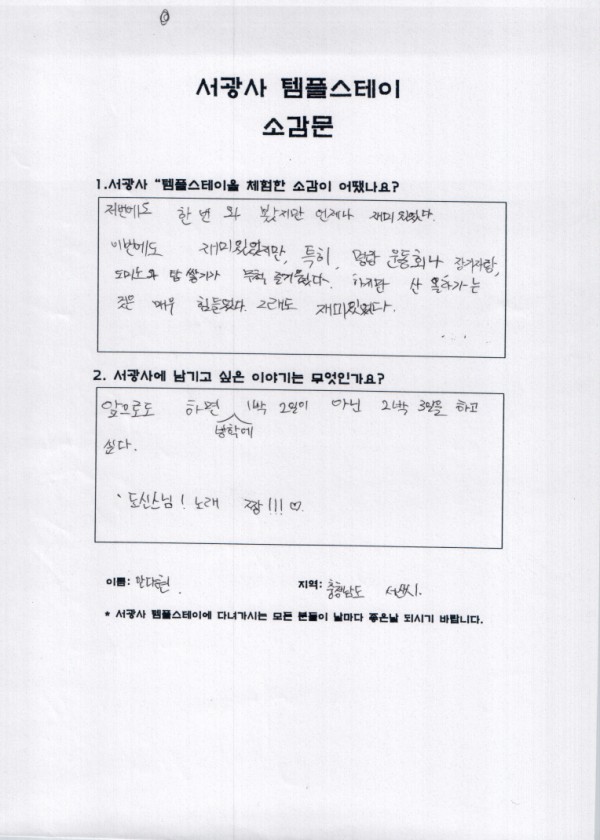 서광사 템플스테이
소감문
1.서광사 “템플스테이을 체험한 소감이 어땠나요?
저번에도 한 번 와 봤지만 언제나 재미있었다.
이번에도 재미있었지만, 특히, 명랑 운동회나 장기자랑,
도미노와 탑 쌓기가 무척 즐거웠다. 하지만 산 올라가는
것은 매우 힘들었다. 그래도 재미있었다.
...
2. 서광사에 남기고 싶은 이야기는 무엇인가요?
앞으로도 하면 1박 2일이 아닌 2박 3일을 하고
방학에
싶다.
도신스님! 노래 짱!!! ♡
이름: 지역: 충청남도 서산시.
* 서광사 템플스테이에 다녀가시는 모든 분들이 날마다 좋은날 되시기 바랍니다.